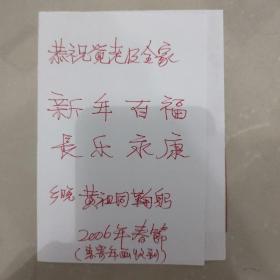 恭祝党老及全家
新年百福
長乐永康
乡晚 黄祖同鞠躬
2006年春節
(来寄年画收到)